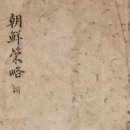 朝鮮策略